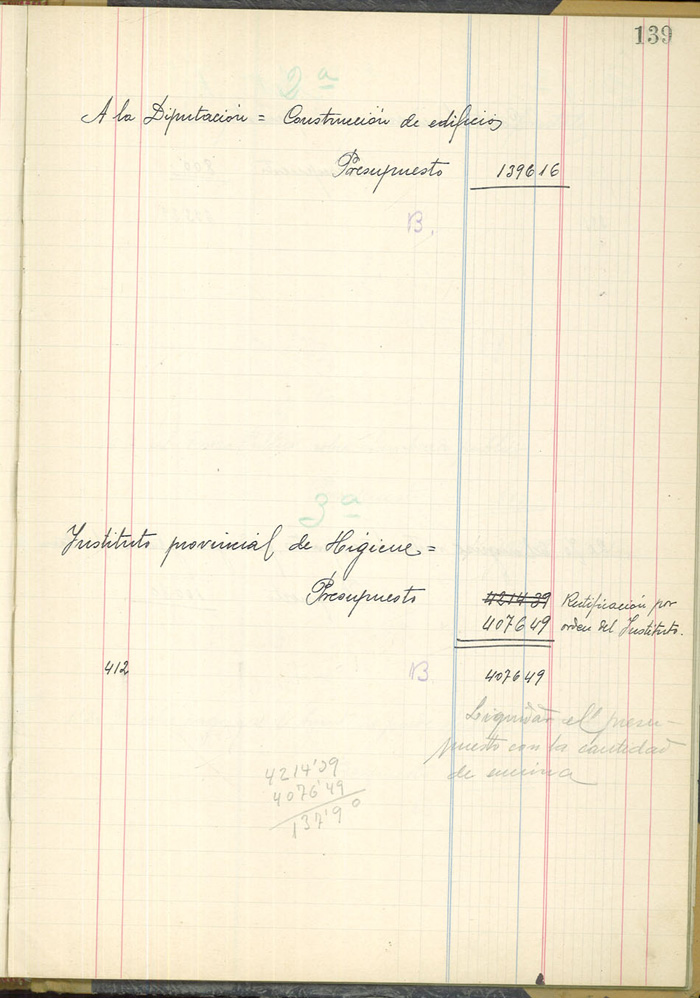 139
2ª
A la Diputación = Construcción de edificios
Presupuesto 1396 16
B.
3ª
Instituto provincial de Higiene =
Presupuesto 4214 39 Rectificación por
4076 49 orden del Instituto.
412 B. 4076 49
Liquidar el presu-
puesto con la cantidad
de encima
4214'39
4076'49
137'90